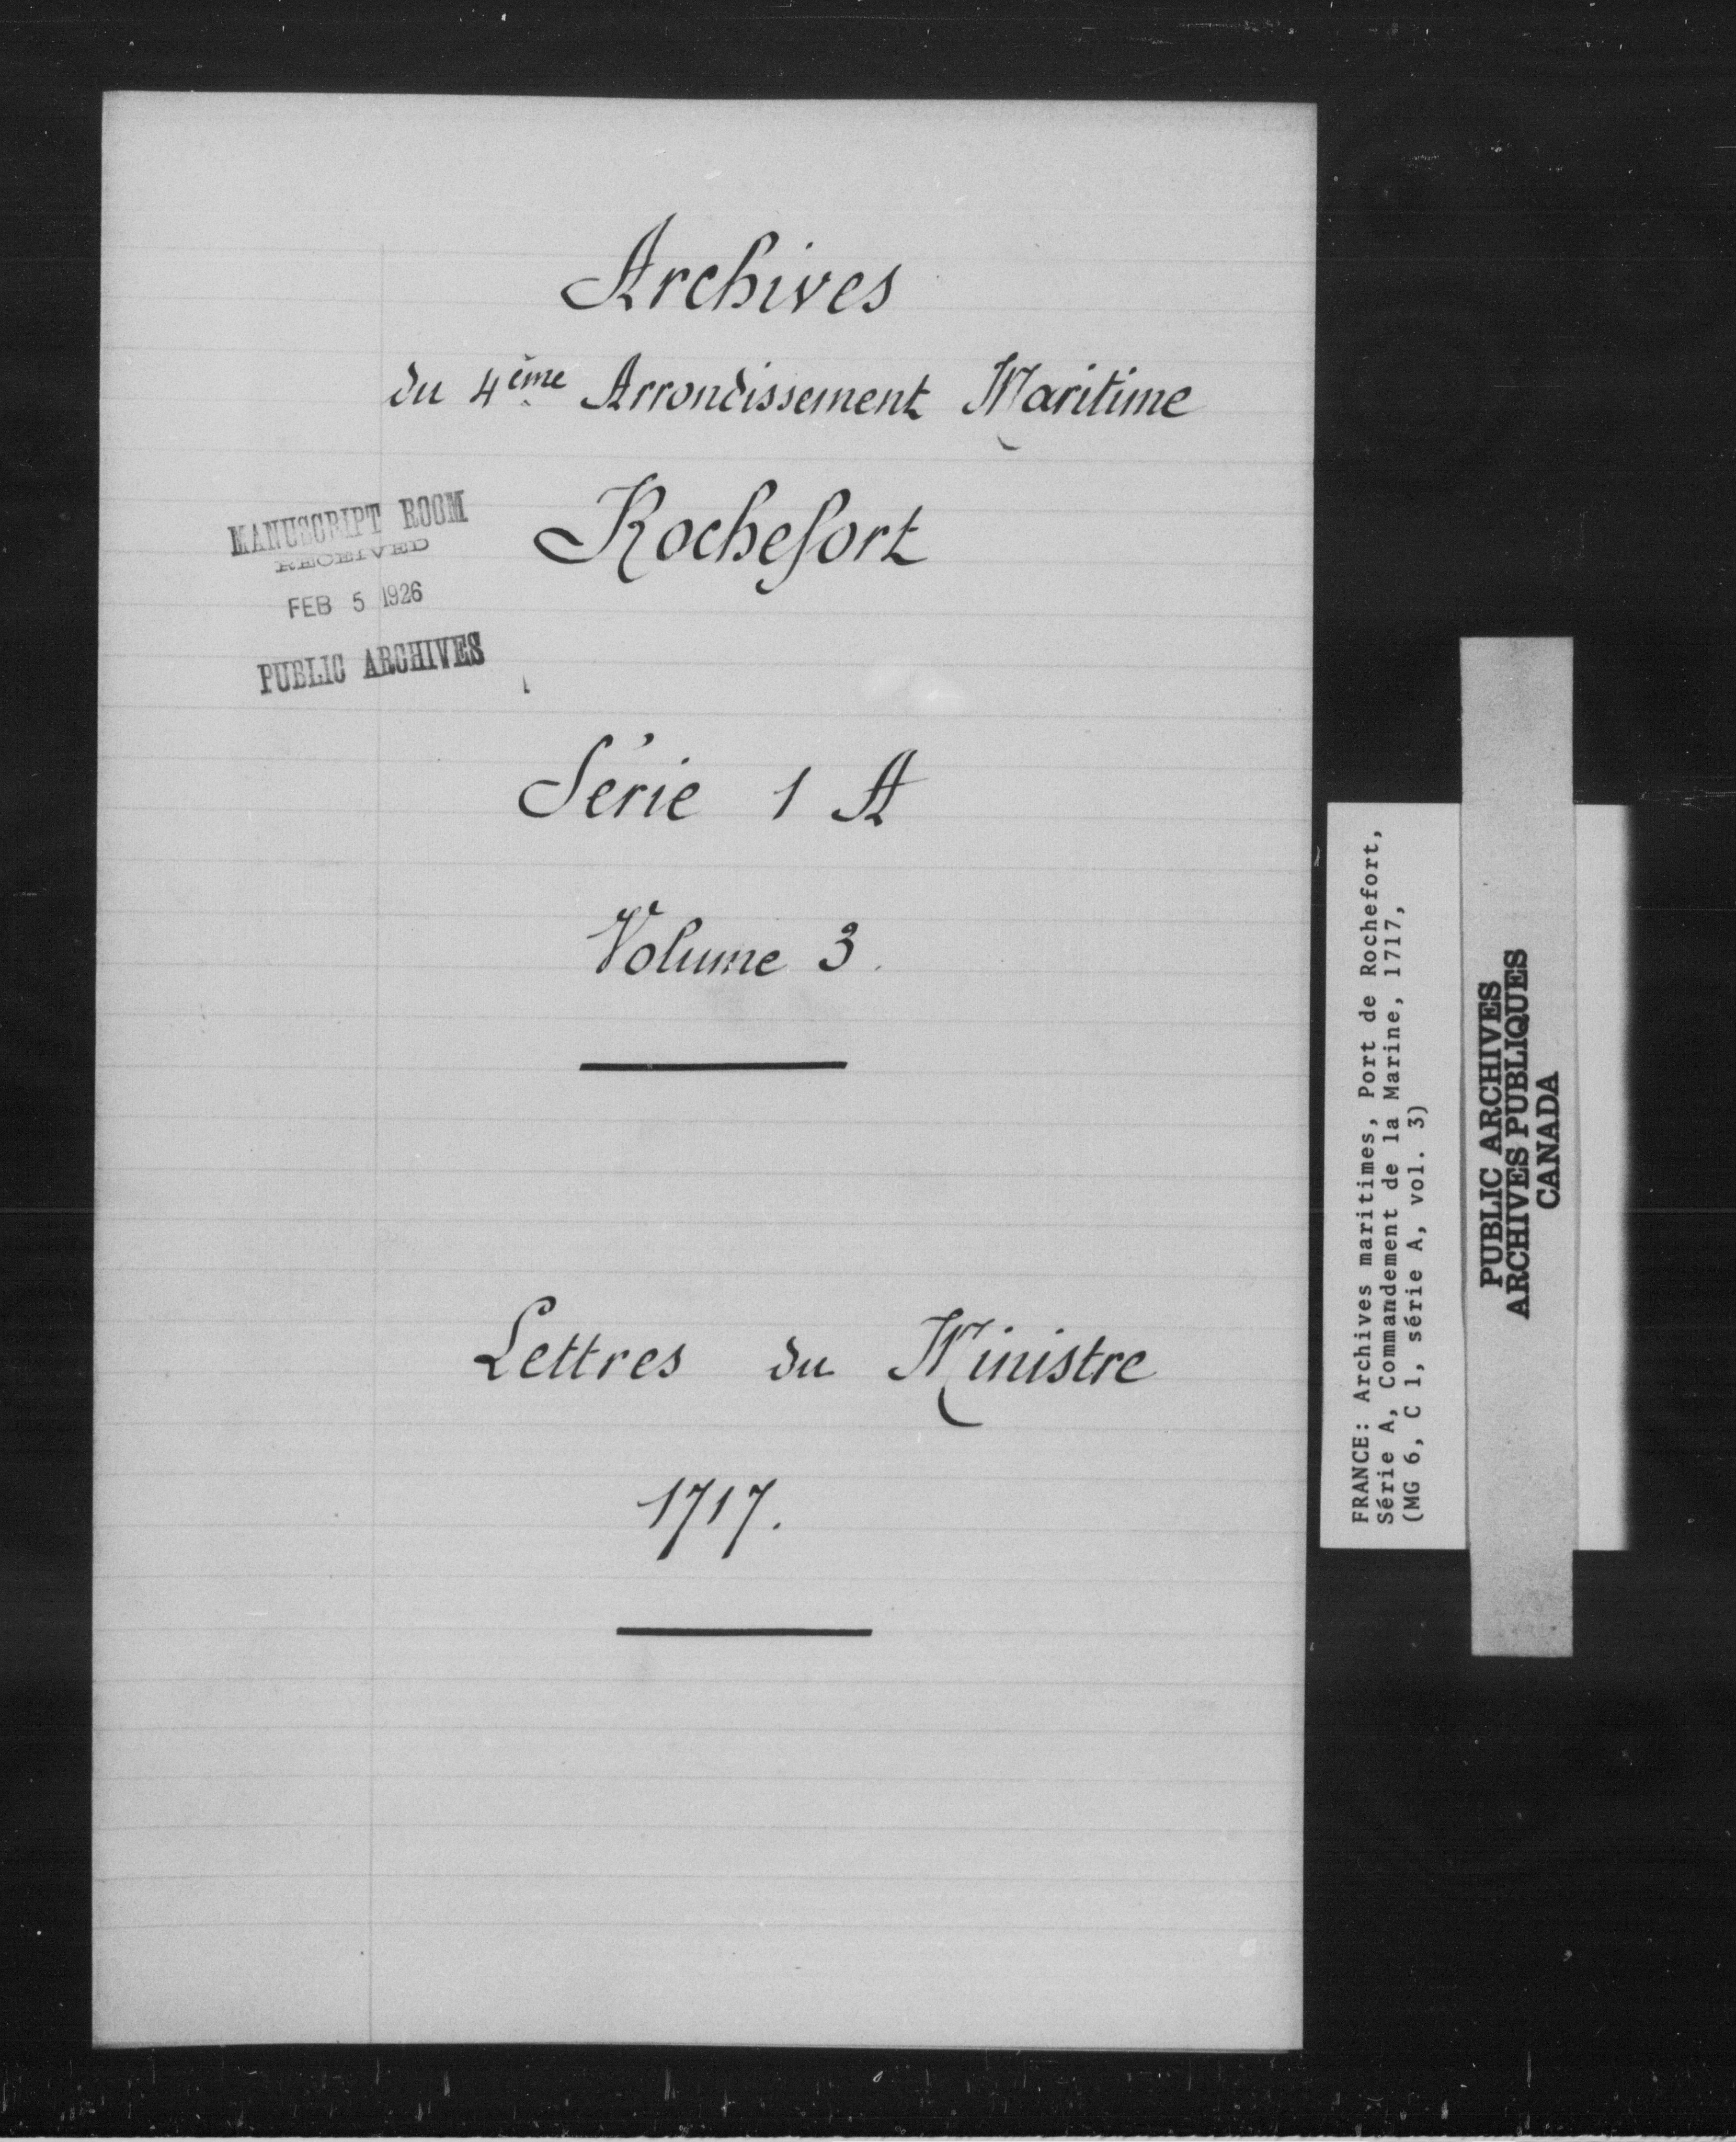 Archives
du 4ème Arrondissement Maritime
Rochefort
MANUSCRIPT ROOM
RECEIVED
FEB 5 1926
PUBLIC ARCHIVES
Série 1 A
Volume 3.
Lettres du Ministre
1717.
FRANCE: Archives maritimes, Port de Rochefort,
Série A, Commandement de la Marine, 1717,
(MG 6, C 1, série A, vol. 3)
PUBLIC ARCHIVES
ARCHIVES PUBLIQUES
CANADA